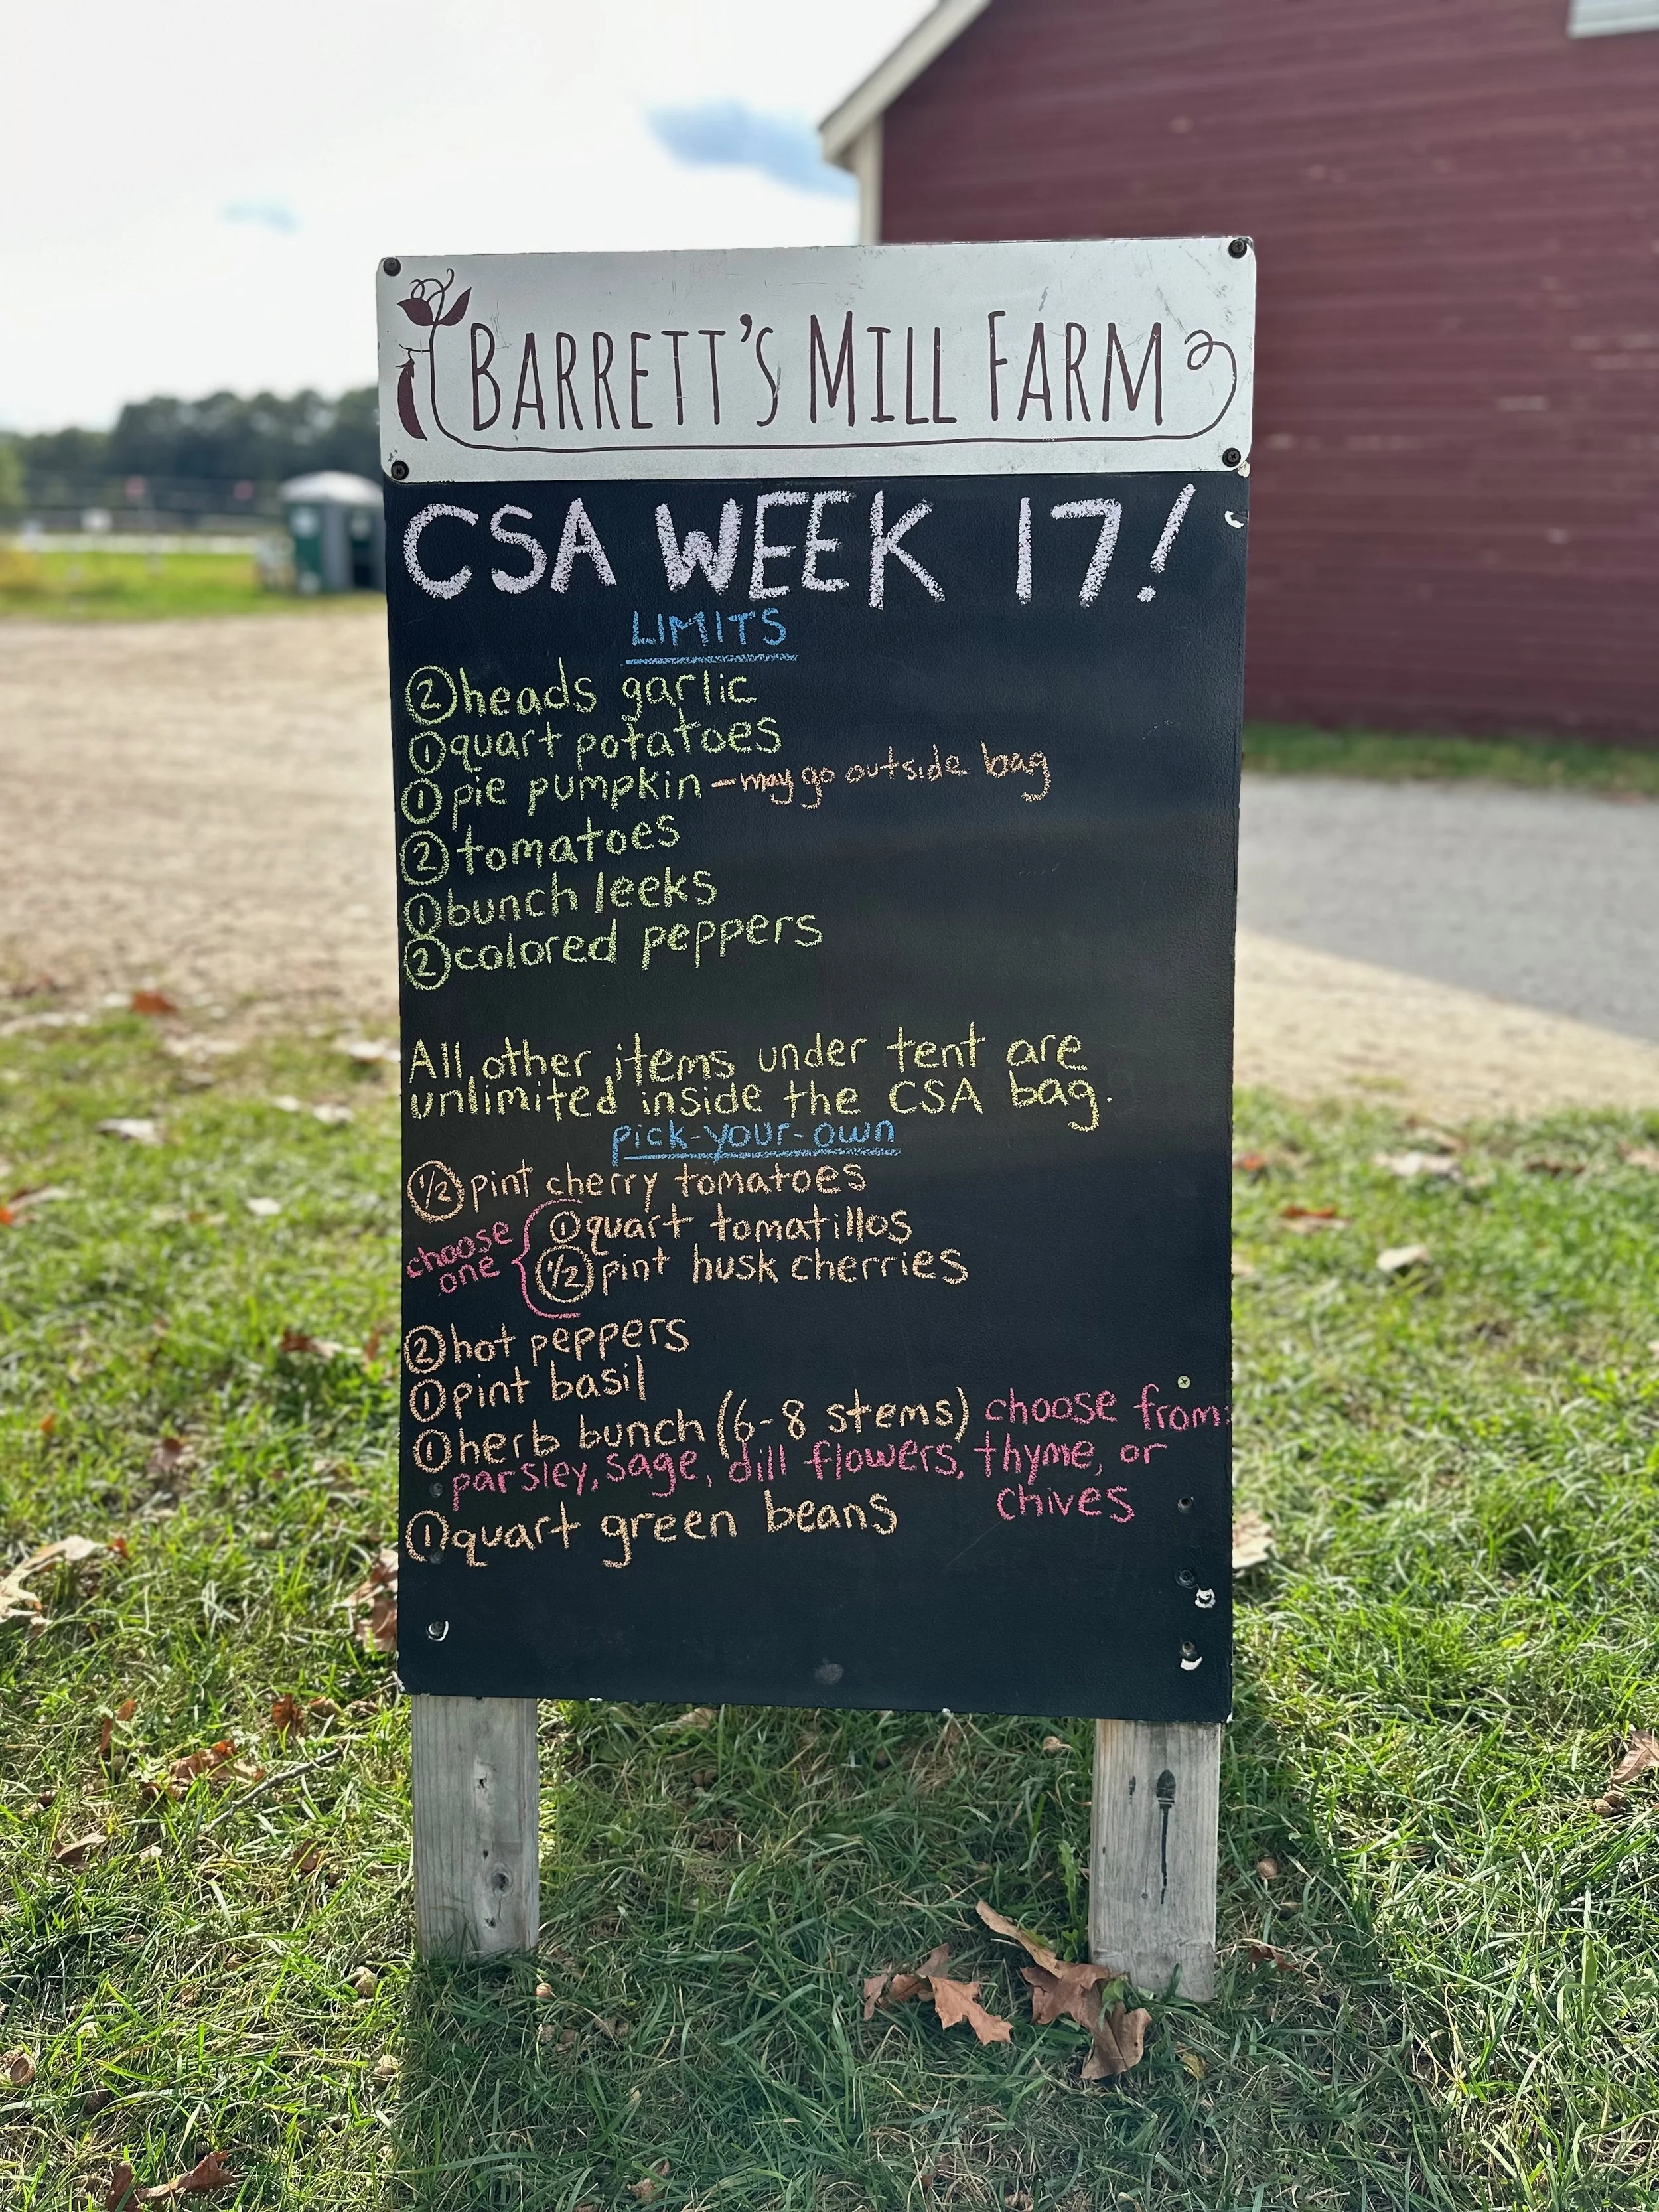 BARRETT'S MILL FARM
CSA WEEK 17!
LIMITS
2 heads garlic
1 quart potatoes
1 pie pumpkin - may go outside bag
2 tomatoes
1 bunch leeks
2 colored peppers
All other items under tent are
unlimited inside the CSA bag.
pick-your-own
1/2 pint cherry tomatoes
choose one
1 quart tomatillos
1/2 pint husk cherries
2 hot peppers
1 pint basil
1 herb bunch (6-8 stems) choose from:
parsley, sage, dill flowers, thyme, or
chives
1 quart green beans